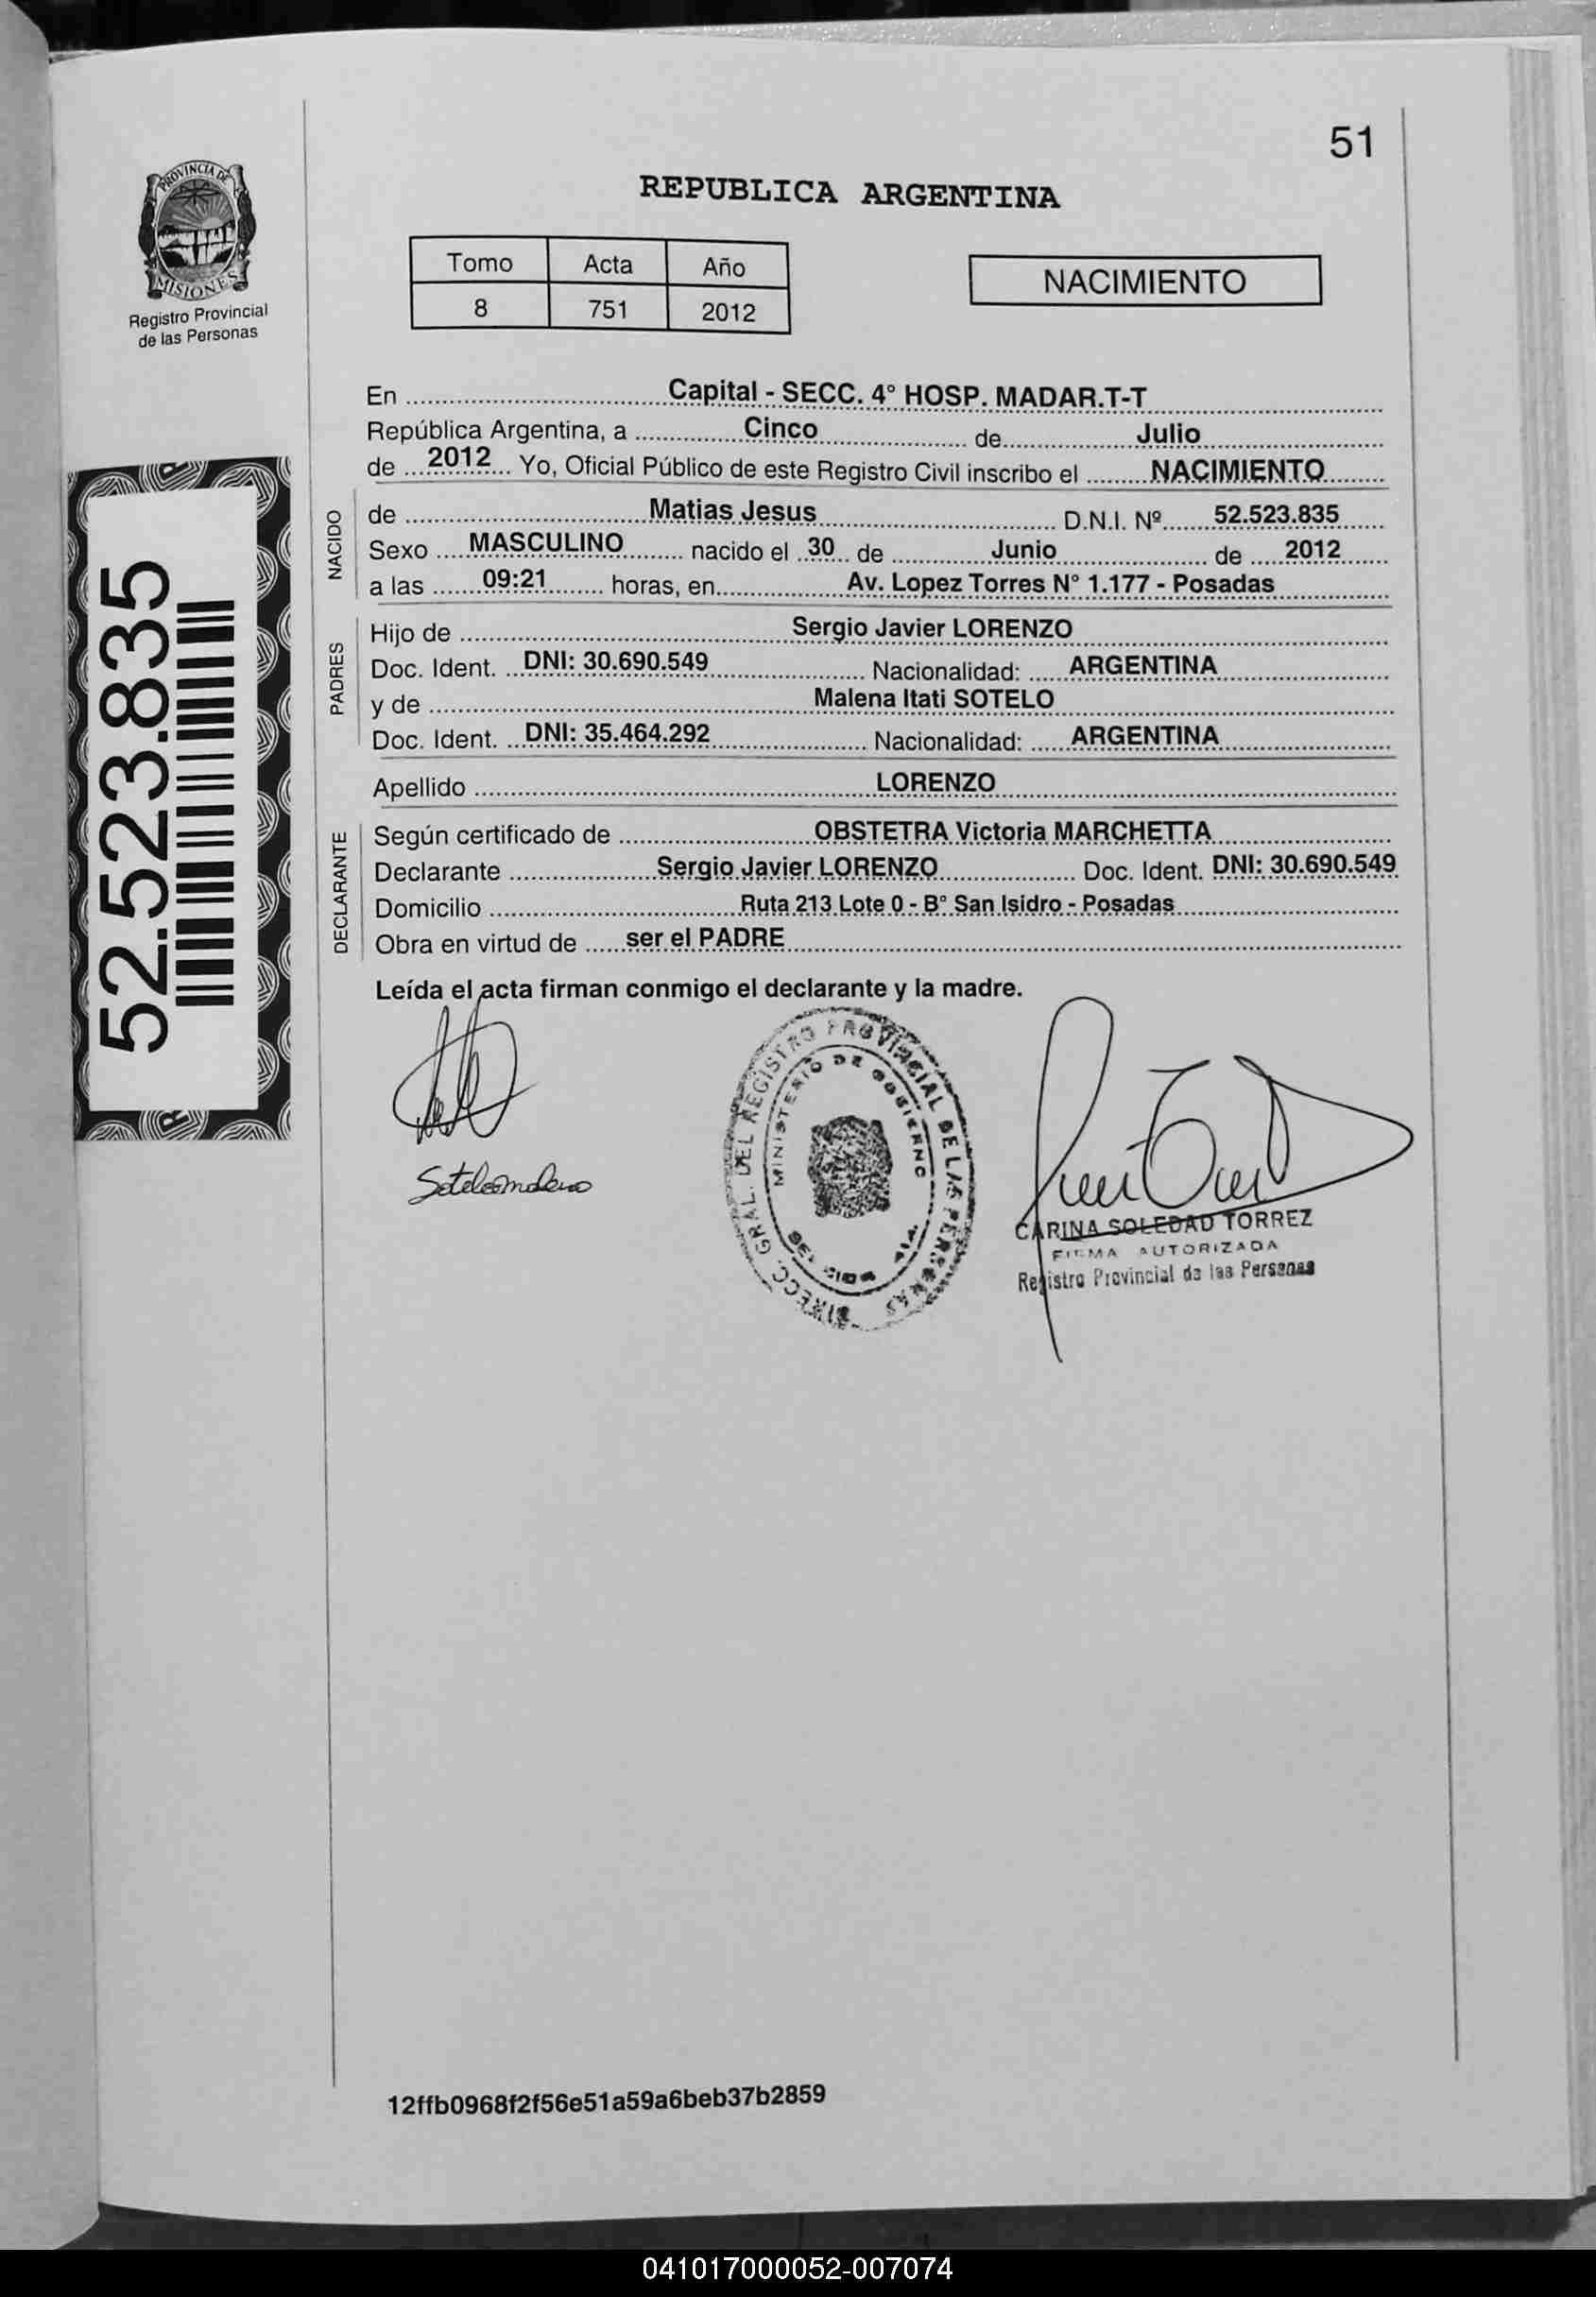 51
PROVINCIA DE
MISIONES
Registro Provincial
de las Personas
REPUBLICA ARGENTINA
Tomo Acta Año
8 751 2012
NACIMIENTO
En Capital - SECC. 4° HOSP. MADAR.T-T
República Argentina, a Cinco de Julio
de 2012 Yo, Oficial Público de este Registro Civil inscribo el NACIMIENTO
NACIDO
de Matias Jesus D.N.I. Nº 52.523.835
Sexo MASCULINO nacido el 30 de Junio de 2012
a las 09:21 horas, en Av. Lopez Torres N° 1.177 - Posadas
PADRES
Hijo de Sergio Javier LORENZO
Doc. Ident. DNI: 30.690.549 Nacionalidad: ARGENTINA
y de Malena Itati SOTELO
Doc. Ident. DNI: 35.464.292 Nacionalidad: ARGENTINA
Apellido LORENZO
DECLARANTE
Según certificado de OBSTETRA Victoria MARCHETTA
Declarante Sergio Javier LORENZO Doc. Ident. DNI: 30.690.549
Domicilio Ruta 213 Lote 0 - B° San Isidro - Posadas
Obra en virtud de ser el PADRE
Leída el acta firman conmigo el declarante y la madre.
52.523.835
DIRECC. GRAL. DEL REGISTRO PROVINCIAL DE LAS PERSONAS
MINISTERIO DE GOBIERNO
CARINA SOLEDAD TORREZ
FIRMA AUTORIZADA
Registro Provincial de las Personas
12ffb0968f2f56e51a59a6beb37b2859
041017000052-007074